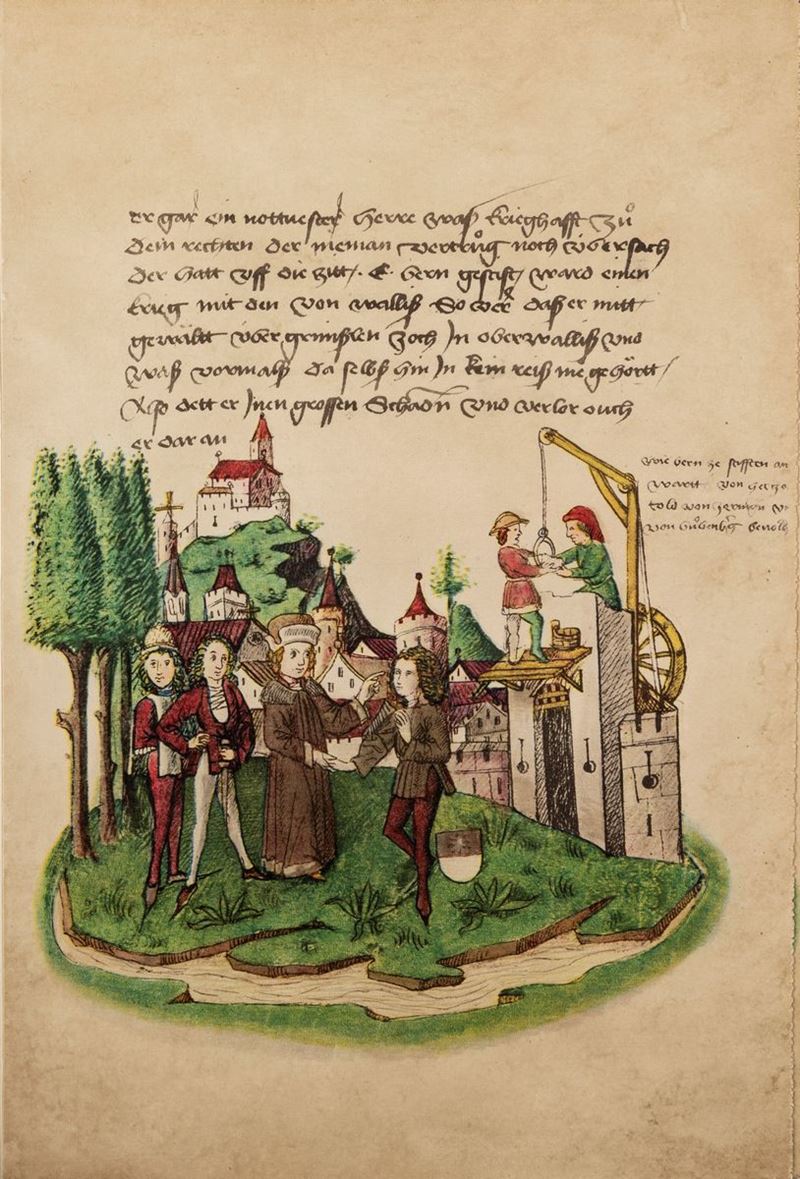 er gar ein nottuester herre waß krieghafft zů
dem rechten der nieman vertrůg noch übersach
der hatt vff die zitt / E bern gestift ward einen
krieg mit den von walliß So ver daß er mitt
gewaltt über grimßlen zoch Jn oberwalliß vnd
waß vormalß da selbß hin Jn kein reiß me gehörtt /
Also dett er Jnen grossen Schadn vnd verlor ouch
er dar an
wie bern ze stifften an
wartt von
told von
von bůbenberg bevolh